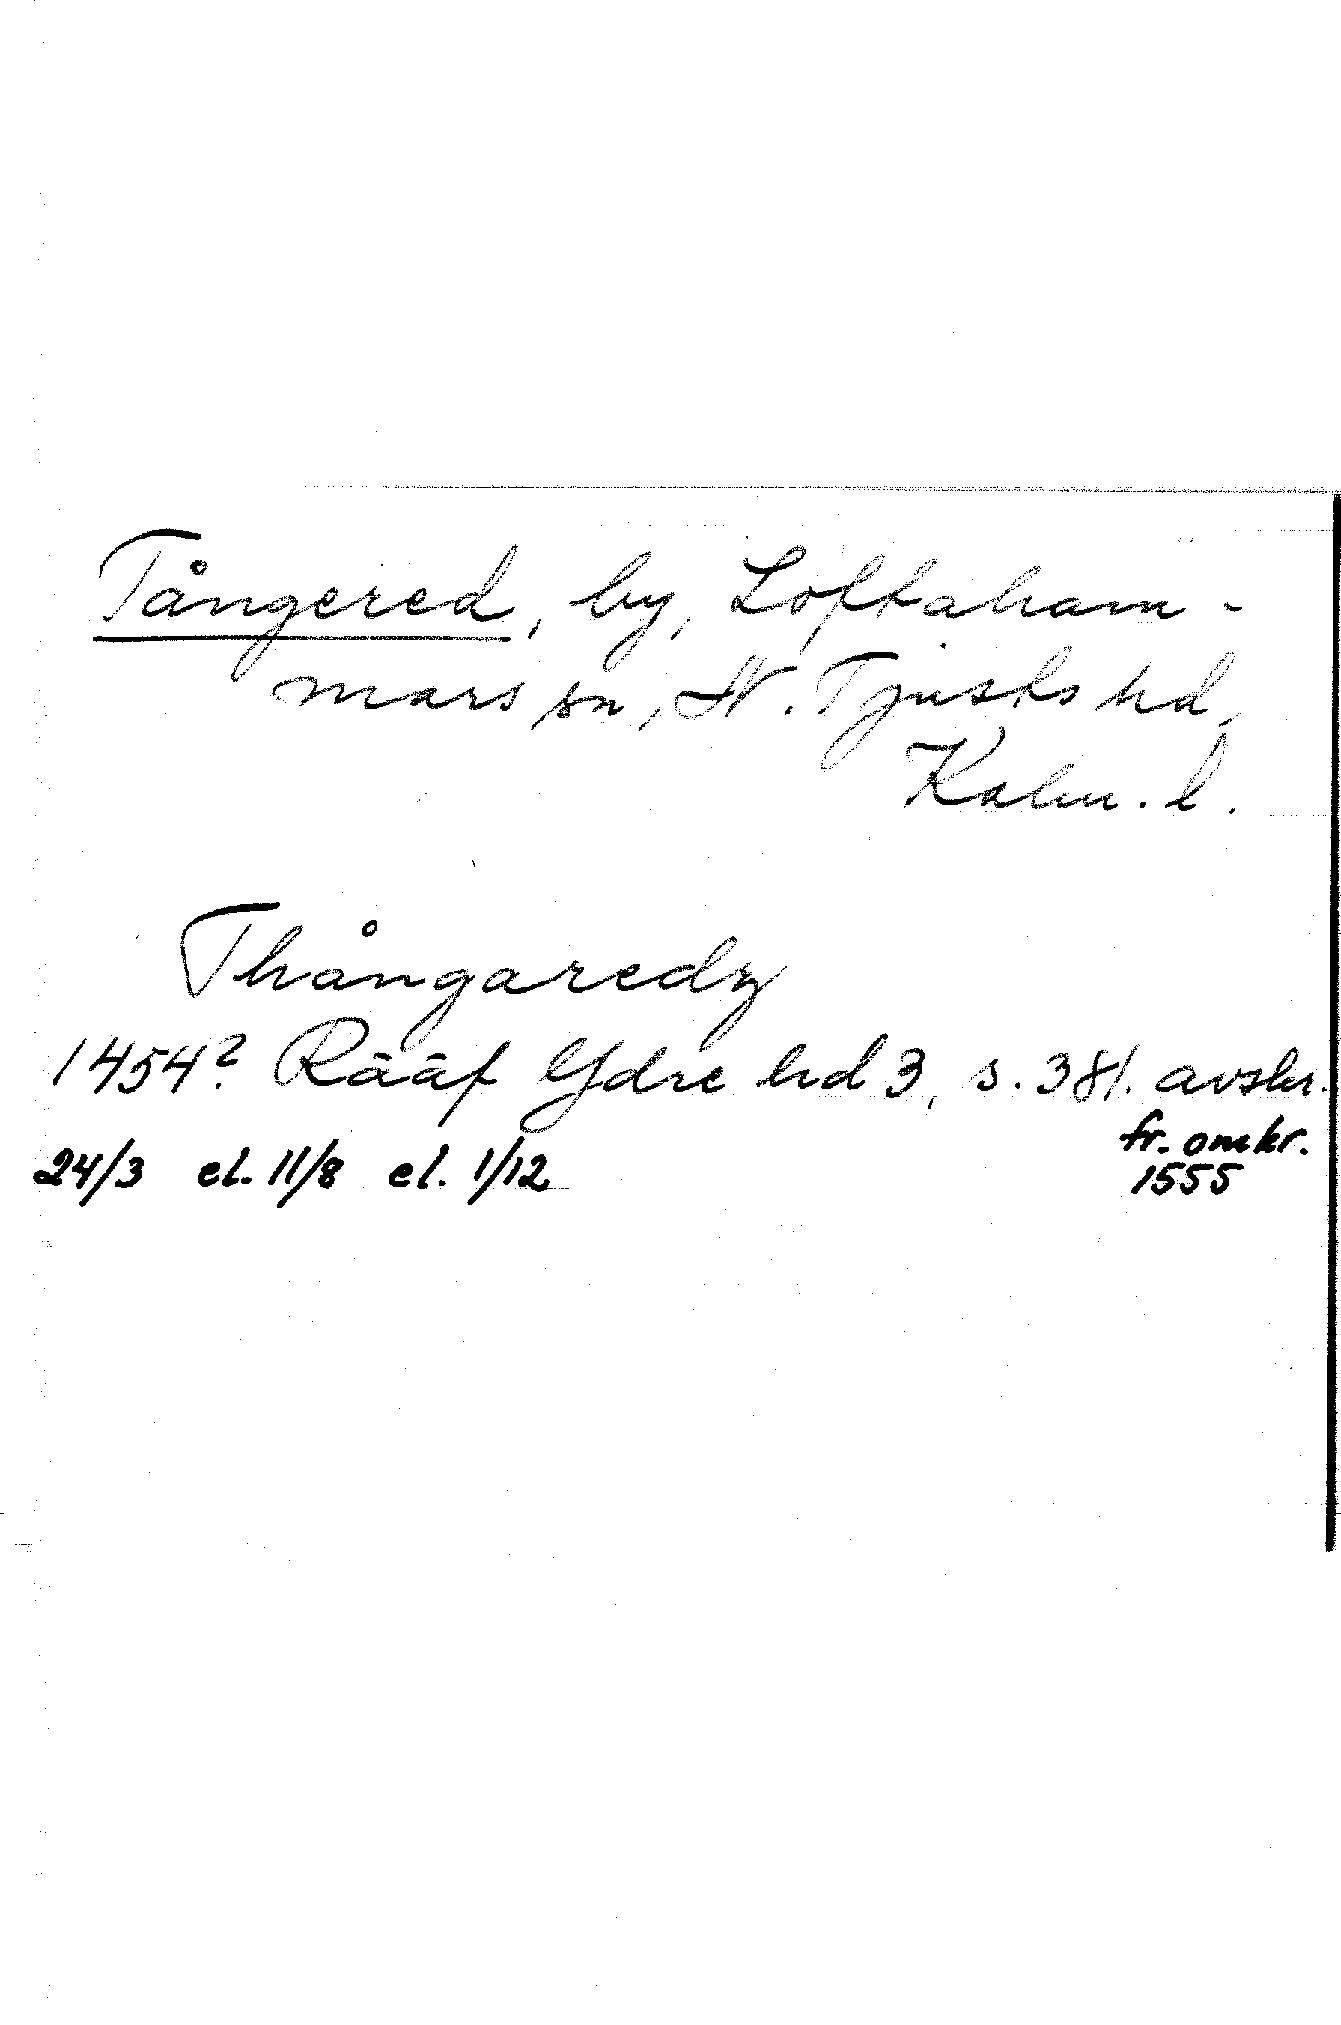 Tångered, by, Loftaham-
mars sn, N. Tjusts hd,
Kalm. l.
Thångaredz
1454? Rääf Ydre hd 3, s. 381. avskr.
fr. omkr.
24/3 el. 11/8 el. 1/12
1555